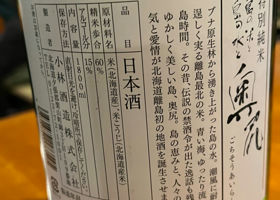 特別純米
奥尻
ごちそうあいらんど
ブナ原生林から湧き上がった島の水。潮風に耐
逞しく実る離島最北の米。青い海、ゆったり流
島時間。その昔、伝説の禁酒令が出た逸話も残
ゆかしく美しい島、奥尻。島の恵みと、人々の
気と愛情が北海道離島初の地酒を誕生させま
品目 日本酒
原材料名 米(北海道産)・米こうじ(北海道産米)
精米歩合 60%
アルコール分 15%
1800
製造者 小林酒造株式会